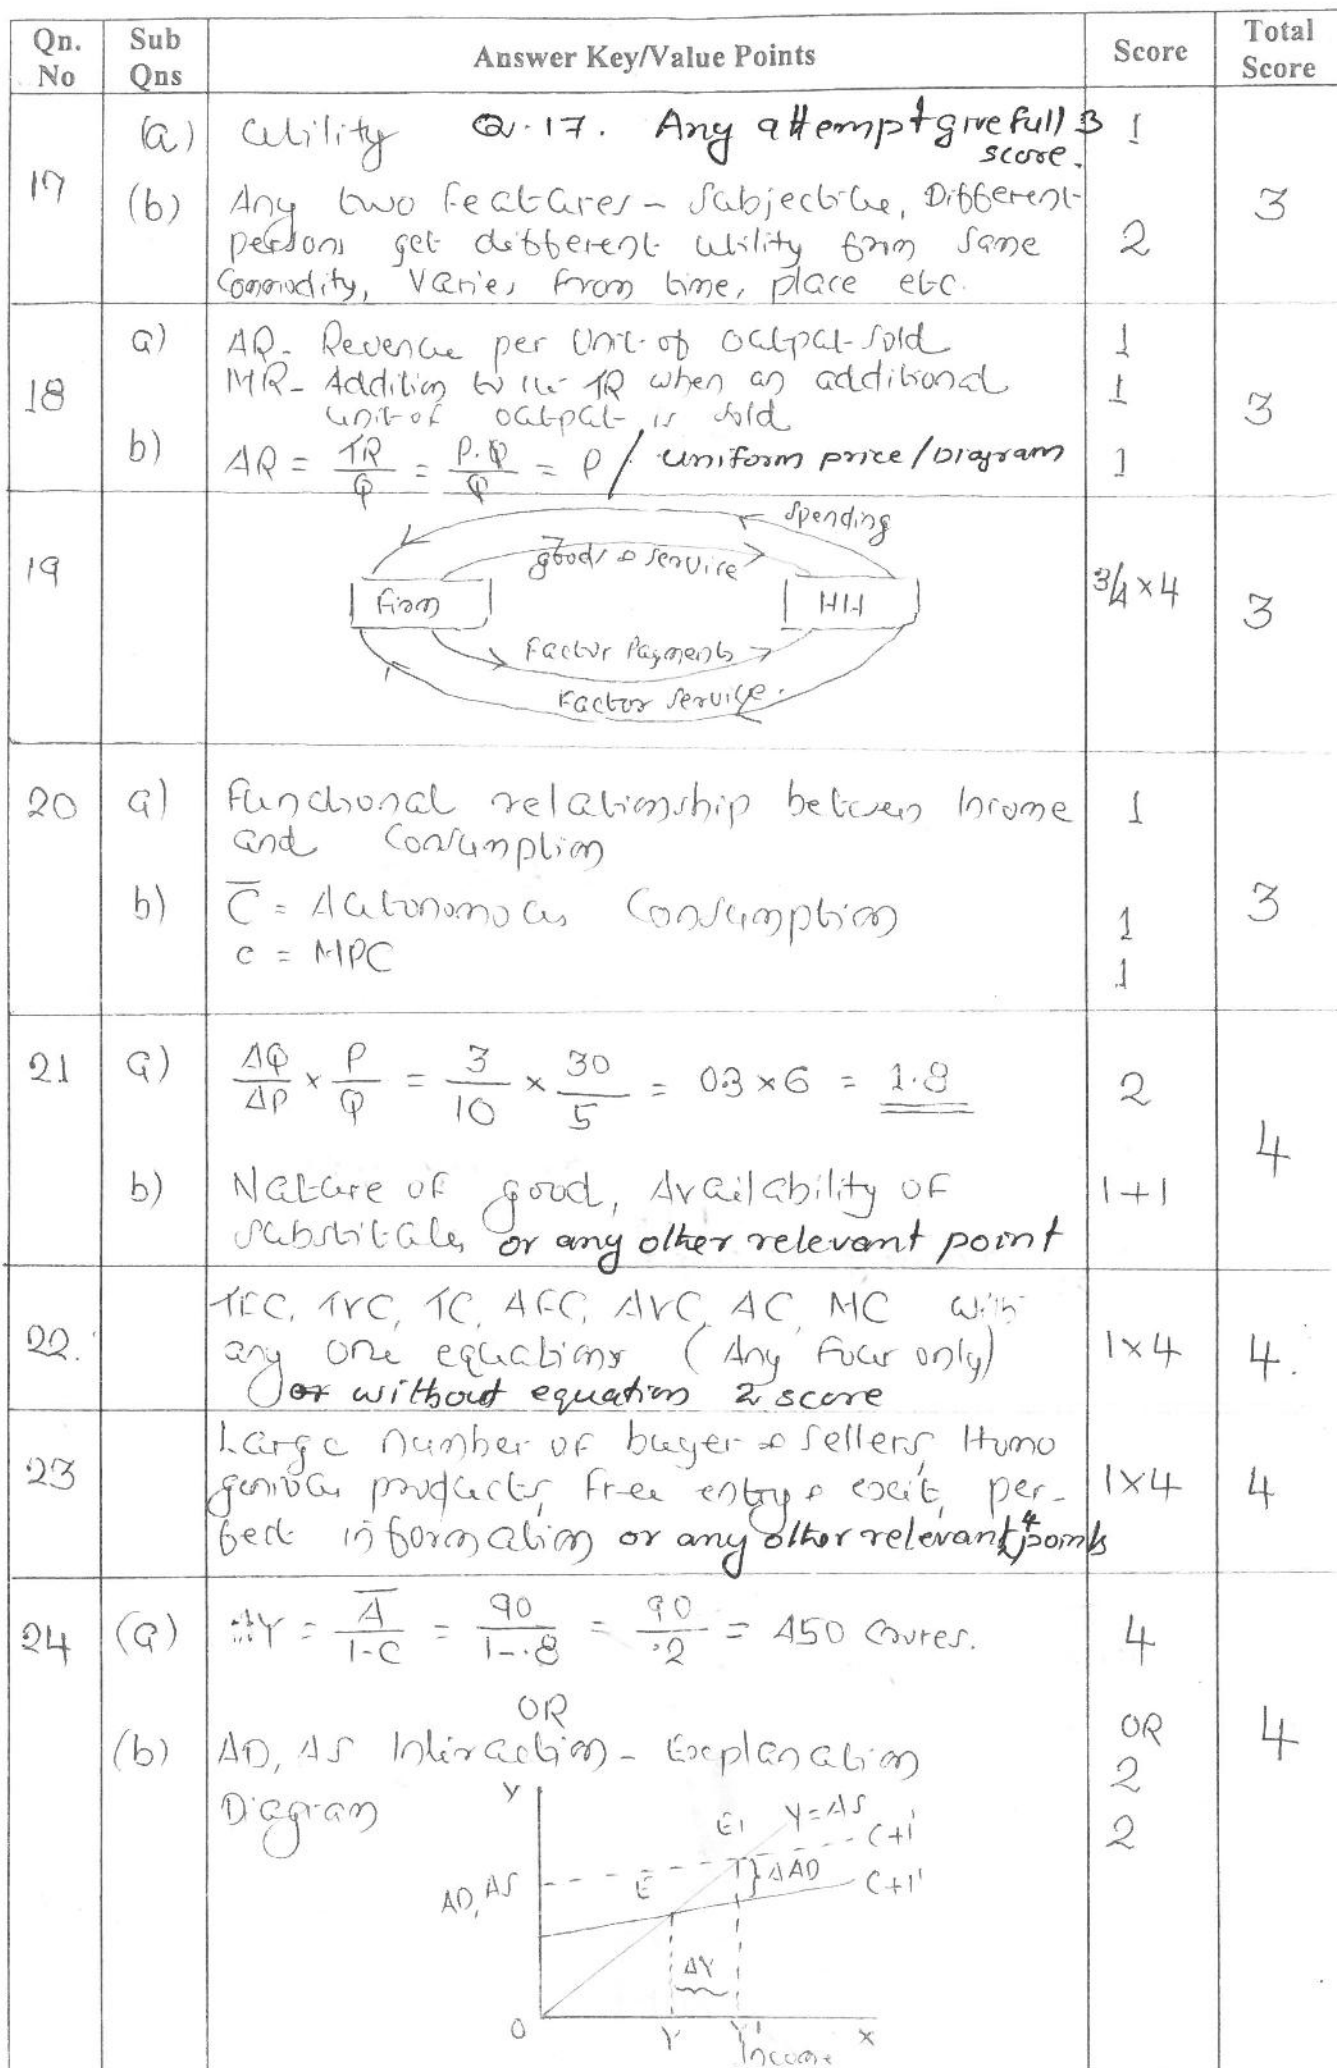 Qn. No Sub Qns Answer Key/Value Points Score Total Score
17 (a) Utility Q.17. Any attempt give full 3 score. 1
(b) Any two features – Subjective, Different
persons get different utility from same 2 3
Commodity, Varies from time, place etc.
18 a) AR – Revenue per Unit of output sold 1
MR – Addition to the TR when an additional 1
unit of output is sold 3
b) AR = TR/Q = P.Q/Q = P / uniform price / Diagram 1
19 Spending
goods & service
Firm HH 3/4 × 4 3
Factor Payments
Factor Service.
20 a) Functional relationship between Income 1
and Consumption
b) C̅ = Autonomous Consumption 1 3
c = MPC 1
21 a) ΔQ/ΔP × P/Q = 3/10 × 30/5 = 03 × 6 = 1.8 2
4
b) Nature of good, Availability of 1+1
substitutes or any other relevant point
22. TFC, TVC, TC, AFC, AVC, AC, MC with
any one equations (Any four only) 1×4 4.
or without equation 2 score
23 Large number of buyer & sellers, Homo
genious products, free entry & exit, per- 1×4 4
fect information or any other relevant 4 points
24 (a) Y = A̅/1-C = 90/1-.8 = 90/.2 = 450 Crores. 4
OR OR
(b) AD, AS Interaction – Explanation 2 4
Diagram 2
Y
E1 Y=AS
C+I'
E ΔAD
AD, AS C+I'
ΔY
O Y Y' X
Income